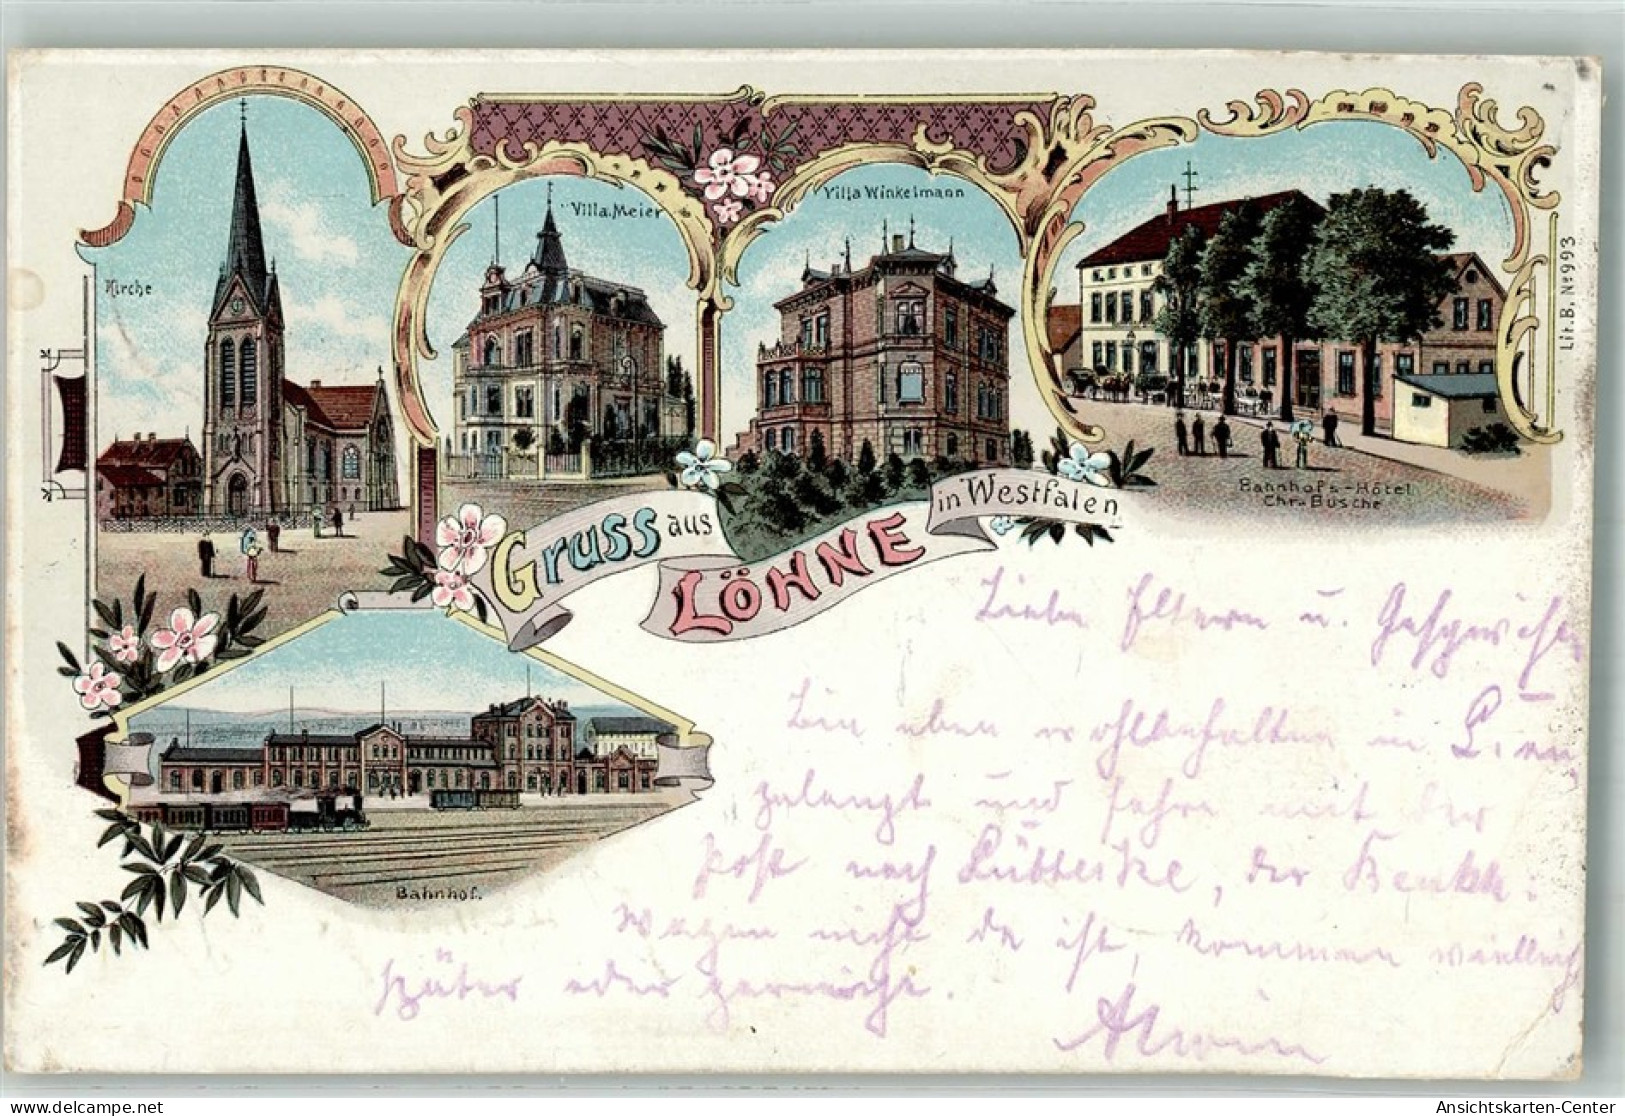 Kirche
Villa Meier
Villa Winkelmann
Bahnhofs-Hôtel
Chr. Büsche
Lit. B. No 993
Gruss aus
LÖHNE
in Westfalen
Bahnhof.
Liebe Eltern u.
Bin eben wohlbehalten in L. an
gelangt und fahre mit der
Post nach Lübbecke, der
Wagen nicht da ist, kommen
später oder
Alwin
delcampe.net
Ansichtskarten-Center